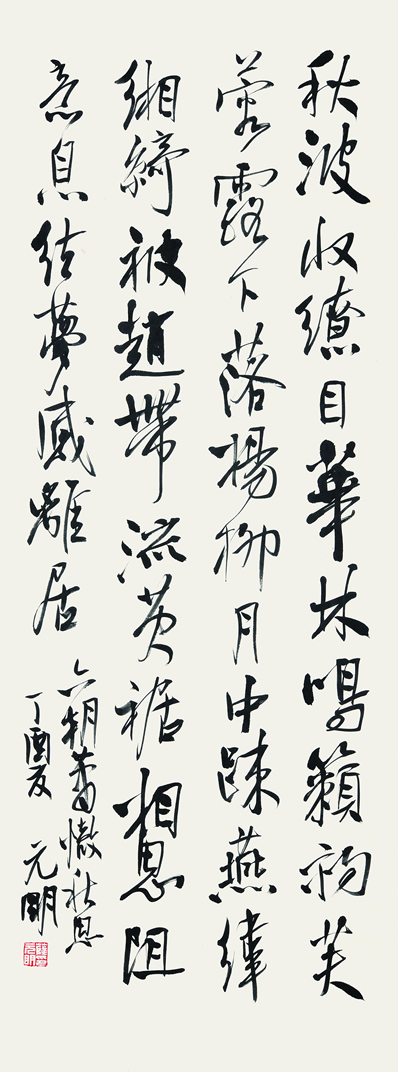 秋波收繚目華林鳴籟初芙
蓉露下落楊柳月中踈燕緯
緗綺被趙帶流黄裾相思阻
意息结夢感離居
六朝蕭慤秋思
丁酉夏 元明